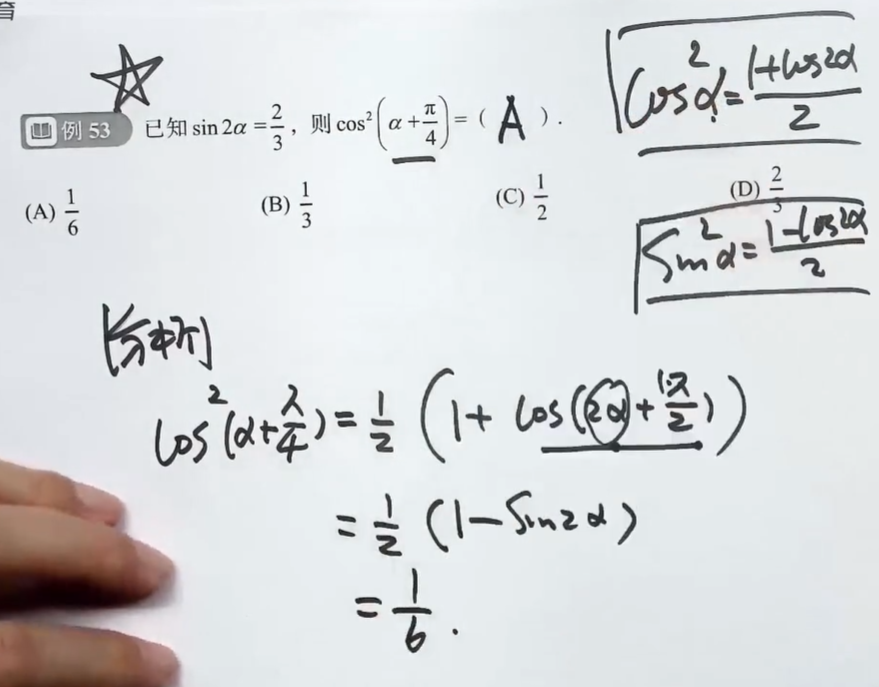 育
例 53 已知 sin 2α = 2/3, 则 cos²(α + π/4) = ( A ).
(A) 1/6 (B) 1/3 (C) 1/2 (D) 2/3
cos²α = (1+cos2α)/2
sin²α = (1-cos2α)/2
[分析]
cos²(α+π/4) = 1/2 (1 + cos(2α + 1·π/2))
= 1/2 (1 - sin2α)
= 1/6 .